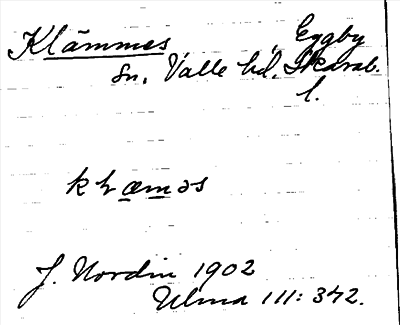 Klämmes Eggby
sn, Valle hd, Skarab.
l.
k ɫæmǝs
J. Nordin 1902
Ulma 111: 342.